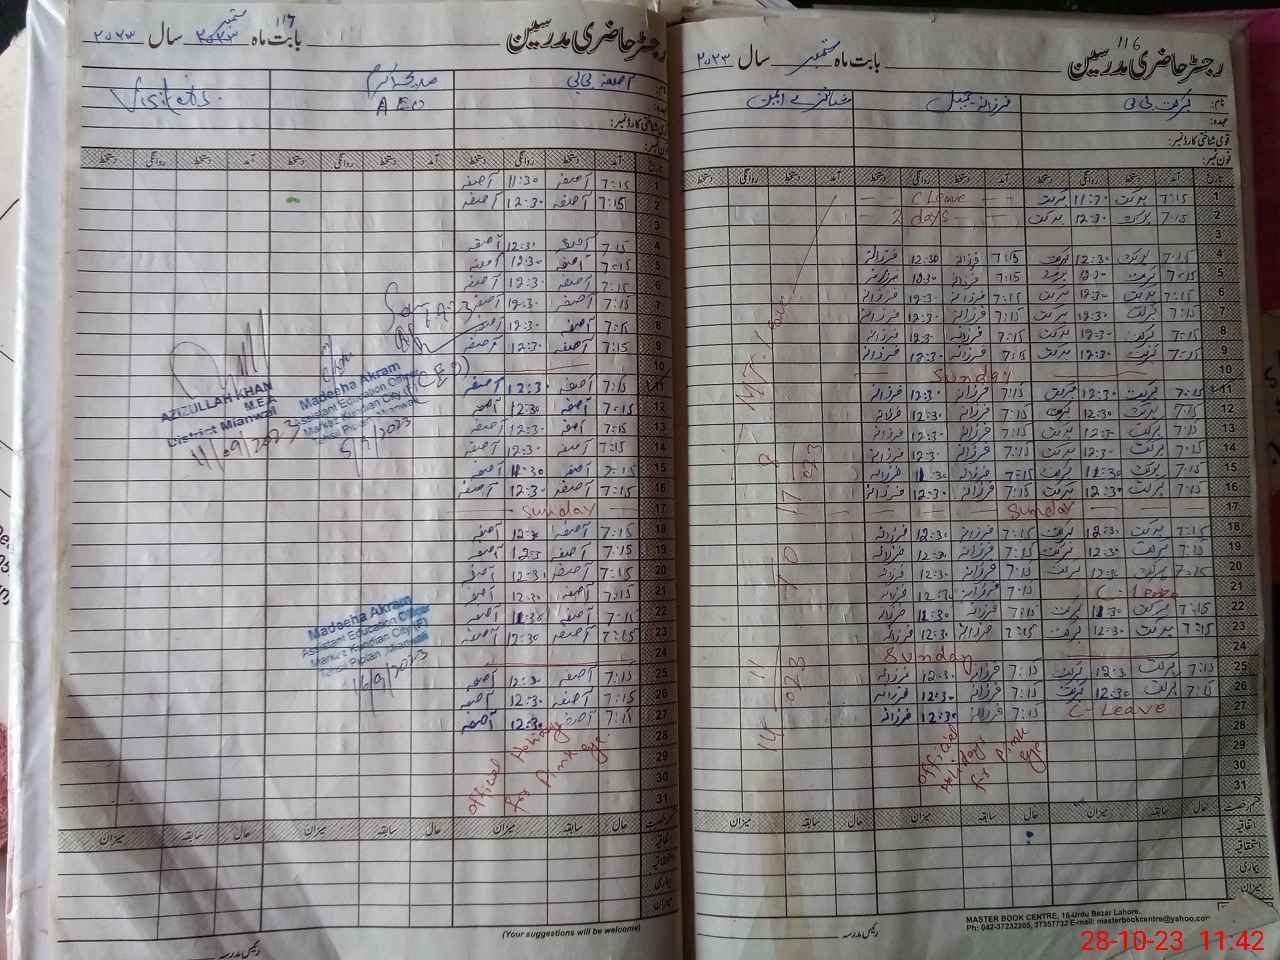 116
رجسٹر حاضری مدرسین
بابت ماہ ستمبر سال ۲۰۲۳
نام: برکت بی بی
فرزانہ جمیل
عہدہ:
قومی شناختی کارڈ نمبر:
فون نمبر:
تاریخ آمد دستخط روانگی دستخط آمد دستخط روانگی دستخط آمد دستخط روانگی دستخط
1 7:15 برکت 11:30 برکت C Leave
2 7:15 برکت 12:30 برکت 2 days
3
4 7:15 برکت 12:30 برکت 7:15 فرزانہ 12:30 فرزانہ
5 7:15 برکت 12:30 برکت 7:15 فرزانہ 12:30 فرزانہ
6 7:15 برکت 12:30 برکت 7:15 فرزانہ 12:30 فرزانہ
7 7:15 برکت 12:30 برکت 7:15 فرزانہ 12:30 فرزانہ
8 7:15 برکت 12:30 برکت 7:15 فرزانہ 12:30 فرزانہ
9 7:15 برکت 12:30 برکت 7:15 فرزانہ 12:30 فرزانہ
10 Sunday
11 7:15 برکت 12:30 برکت 7:15 فرزانہ 12:30 فرزانہ
12 7:15 برکت 12:30 برکت 7:15 فرزانہ 12:30 فرزانہ
13 7:15 برکت 12:30 برکت 7:15 فرزانہ 12:30 فرزانہ
14 7:15 برکت 12:30 برکت 7:15 فرزانہ 12:30 فرزانہ
15 7:15 برکت 11:30 برکت 7:15 فرزانہ 11:30 فرزانہ
16 7:15 برکت 12:30 برکت 7:15 فرزانہ 12:30 فرزانہ
17 Sunday
18 7:15 برکت 12:30 برکت 7:15 فرزانہ 12:30 فرزانہ
19 7:15 برکت 12:30 برکت 7:15 فرزانہ 12:30 فرزانہ
20 7:15 برکت 12:30 برکت 7:15 فرزانہ 12:30 فرزانہ
21 C-Leave 7:15 فرزانہ 12:30 فرزانہ
22 7:15 برکت 11:30 برکت 7:15 فرزانہ 11:30 فرزانہ
23 7:15 برکت 12:30 برکت 7:15 فرزانہ 12:30 فرزانہ
24 Sunday
25 7:15 برکت 12:30 برکت 7:15 فرزانہ 12:30 فرزانہ
26 7:15 برکت 12:30 برکت 7:15 فرزانہ 12:30 فرزانہ
27 C-Leave 7:15 فرزانہ 12:30 فرزانہ
28
29
30
31
official
Holidays
for pink
eye
قسم رخصت حال سابقہ میزان حال سابقہ میزان حال سابقہ میزان
اتفاقیہ
استحقاقیہ
بیماری
میزان
رئیس مدرسہ
MASTER BOOK CENTRE, 16-Urdu Bazar Lahore.
Ph: 042-37232205, 37357732 E-mail: masterbookcentre@yahoo.com
117
رجسٹر حاضری مدرسین
بابت ماہ ستمبر ۲۰۲۳ سال ۲۰۲۳
آصفہ بی بی
AEO
Visitors.
قومی شناختی کارڈ نمبر:
فون نمبر:
آمد دستخط روانگی دستخط آمد دستخط روانگی دستخط آمد دستخط روانگی دستخط
1 7:15 آصفہ 11:30 آصفہ
2 7:15 آصفہ 12:30 آصفہ
3
4 7:15 آصفہ 12:30 آصفہ
5 7:15 آصفہ 12:30 آصفہ
6 7:15 آصفہ 12:30 آصفہ
7 7:15 آصفہ 12:30 آصفہ
8 7:15 آصفہ 12:30 آصفہ
9 7:15 آصفہ 12:30 آصفہ
10
11 7:15 آصفہ 12:30 آصفہ
12 7:15 آصفہ 12:30 آصفہ
13 7:15 آصفہ 12:30 آصفہ
14 7:15 آصفہ 12:30 آصفہ
15 7:15 آصفہ 11:30 آصفہ
16 7:15 آصفہ 12:30 آصفہ
17 Sunday
18 7:15 آصفہ 12:30 آصفہ
19 7:15 آصفہ 12:30 آصفہ
20 7:15 آصفہ 12:30 آصفہ
21 7:15 آصفہ 12:30 آصفہ
22 7:15 آصفہ 11:30 آصفہ
23 7:15 آصفہ 12:30 آصفہ
24
25 7:15 آصفہ 12:30 آصفہ
26 7:15 آصفہ 12:30 آصفہ
27 7:15 آصفہ 12:30 آصفہ
28
29
30
31
official Holiday
for Pink eye
AZIZULLAH KHAN
M.E.A
District Mianwali
11/09/2023
Madeeha Akram
Assistant Education Officer
Markaz Kundian City (W)
Tehsil Piplan Mianwali
Madeeha Akram
Assistant Education Officer
Markaz Kundian City
16/9/2023
حال سابقہ میزان حال سابقہ میزان حال سابقہ میزان
اتفاقیہ
استحقاقیہ
بیماری
میزان
(Your suggestions will be welcome)
رئیس مدرسہ
28-10-23 11:42